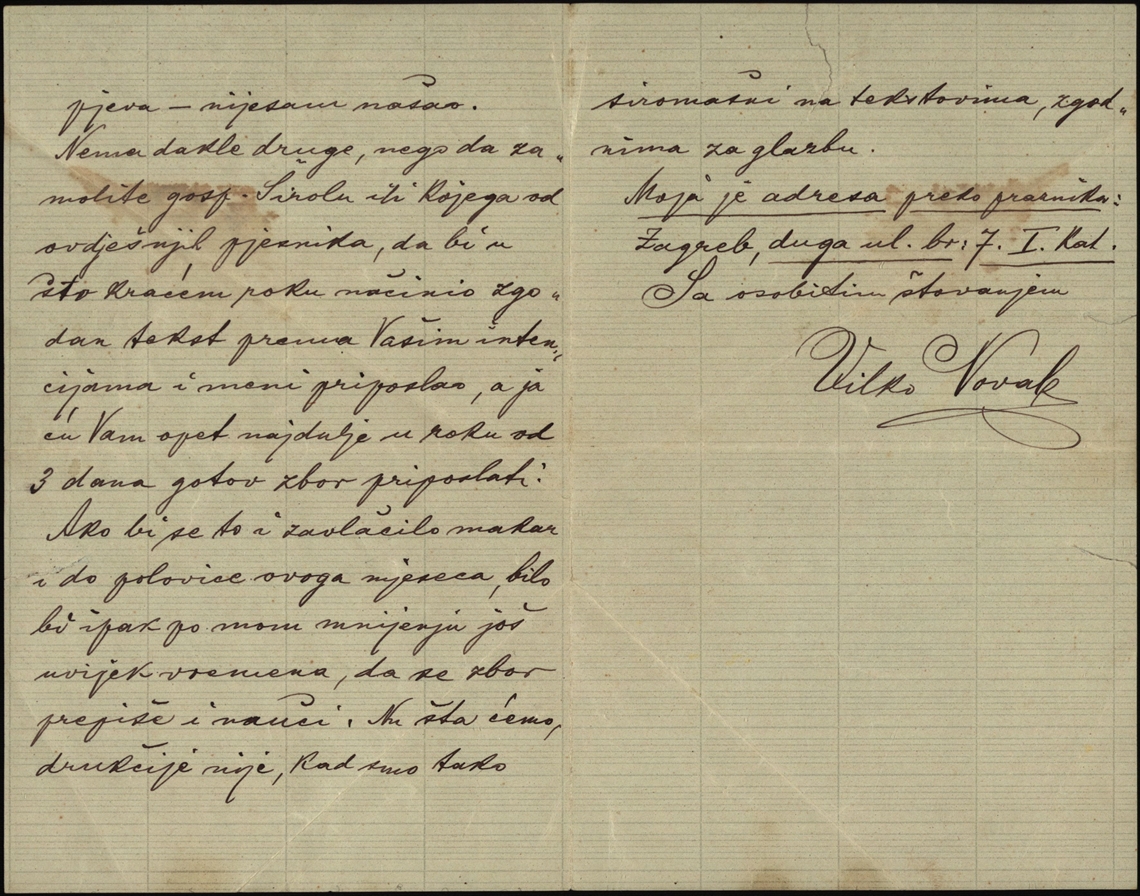 pjeva — nijesam našao.
Nema dakle druge, nego da za„
molite gosp. Širolu ili kojega od
ovdješnjih pjesnika, da bi u
što kraćem roku načinio zgo„
dan tekst prema Vašim inten„
cijama i meni priposlao, a ja
ću Vam opet najdulje u roku od
3 dana gotov zbor priposlati.
Ako bi se to i zavlačilo makar
i do polovice ovoga mjeseca, bilo
bi ipak po mom mnijenju još
uvijek vremena, da se zbor
prepiše i nauči. Nu šta ćemo,
drukčije nije, kad smo tako
siromašni na tekstovima, zgod„
nima za glazbu.
Moja je adresa preko praznika:
Zagreb, duga ul. br: 7. I. kat.
Sa osobitim štovanjem
Vilko Novak